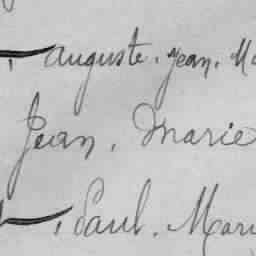 , Auguste, Jean, Ma
Jean, Marie
, Paul, Mari